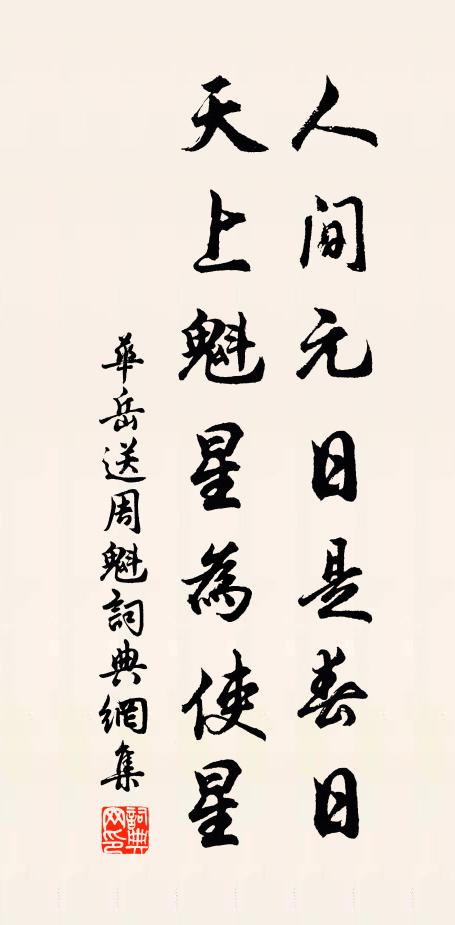 人間元日是春日
天上魁星為使星
華岳送周魁詞典網集
詞典網印